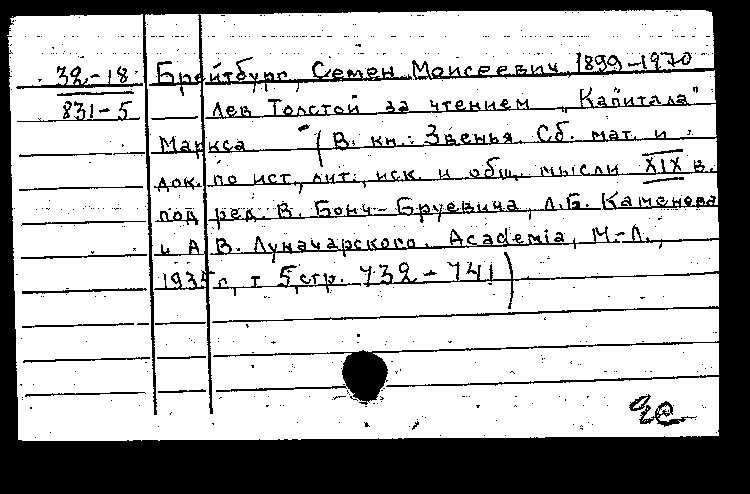 32-18 Брейтбург, Семен Моисеевич, 1899-1970
831-5 Лев Толстой за чтением „Капитала"
Маркса (В. кн.: Звенья. Сб. мат. и
док. по ист., лит., иск. и общ. мысли XIX в.
под ред. В. Бонч-Бруевича, Л.Б. Каменева
и А.В. Луначарского. Academia, М.-Л.,
1935 г, т 5, стр. 732-741)